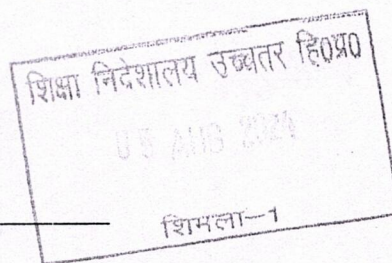 शिक्षा निदेशालय उच्चतर हि0प्र0
AUG 2024
शिमला-1